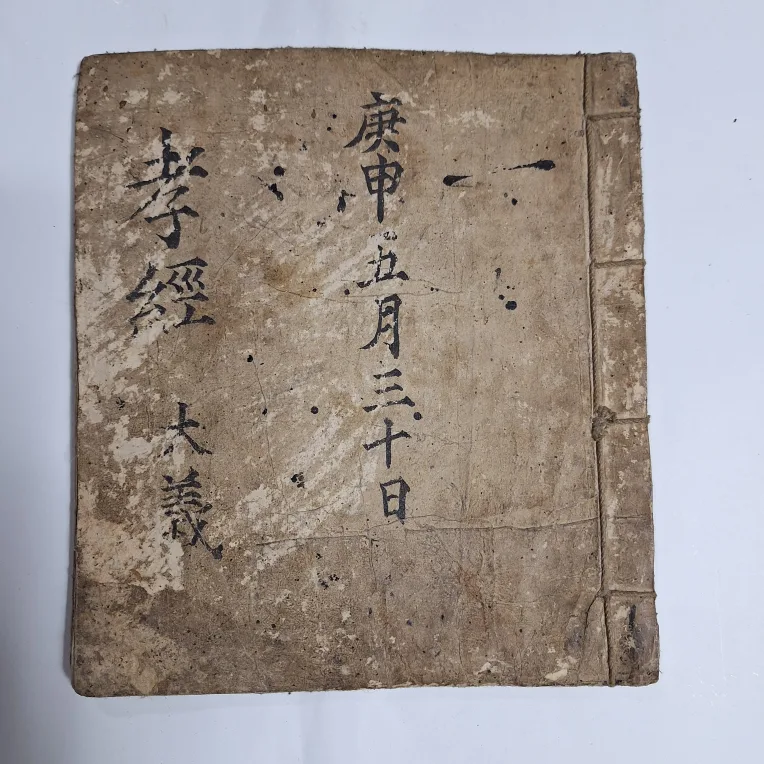 一
庚申五月三十日
孝經 大義